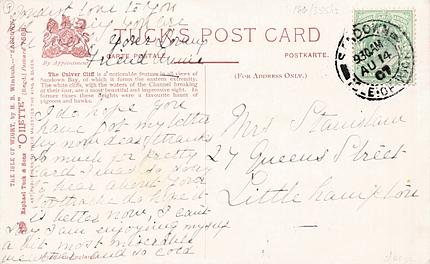 Fondest love to you
you are
Yours loving
Friend Annie
TUCK'S POST CARD
CARTE POSTALE
POSTKARTE.
By Appointment
(FOR ADDRESS ONLY.)
The Culver Cliff is a noticeable feature in all views of
Sandown Bay, of which it forms the eastern extremity.
The white cliffs, with the waters of the Channel breaking
at their feet, are a most beautiful and impressive sight. In
former times these heights were a favourite haunt of
pigeons and hawks.
THE ISLE OF WIGHT, by H. B. Wimbush.
Raphael Tuck & Sons' "OILETTE"
SANDOWN
9 30 AM
AU 14
07
I.OF WIGHT
I do hope you
have got my letter
my now dear, thanks
so much for pretty
card I was so sorry
to hear about your
do hope it
is better now, I cant
say I am enjoying myself
a bit most miserable
and so cold
Mrs Stanislaw
27 Queens Street
Littlehampton